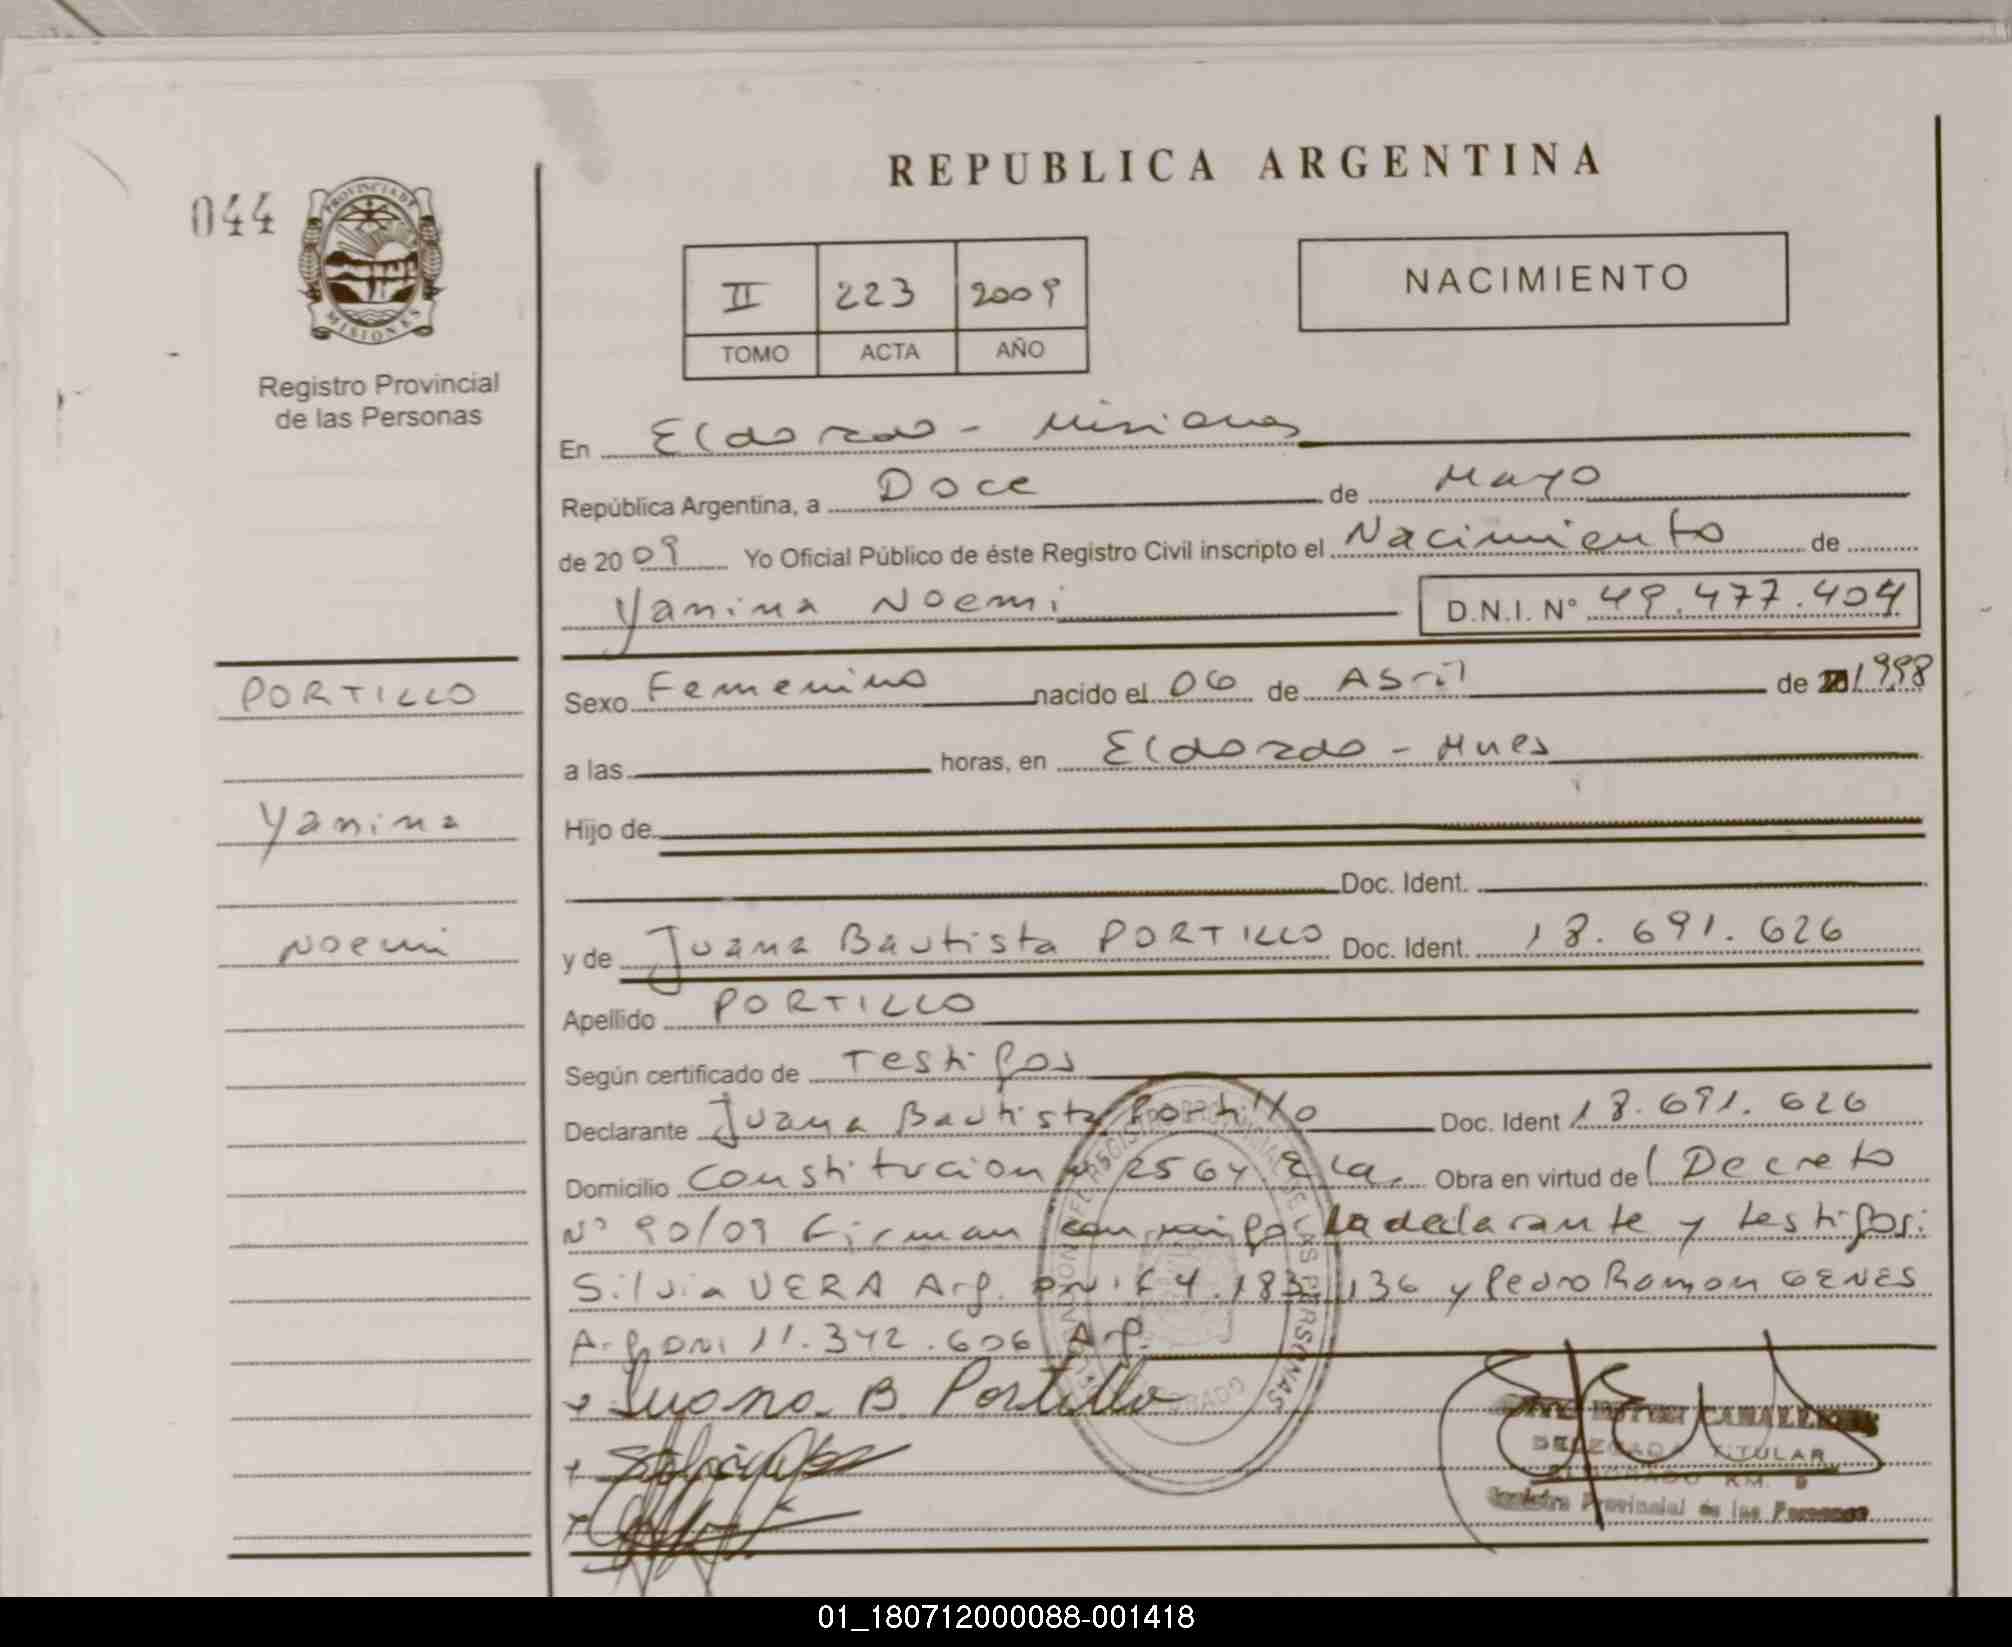 REPUBLICA ARGENTINA
044
PROVINCIA DE
MISIONES
Registro Provincial
de las Personas
II 223 2009
TOMO ACTA AÑO
NACIMIENTO
En Eldorado - Misiones
República Argentina, a Doce de Mayo
de 20 09 Yo Oficial Público de éste Registro Civil inscripto el Nacimiento de
Yanina Noemi D.N.I. N° 49.477.404
PORTILLO
Yanina
Noemi
Sexo Femenino nacido el 06 de Abril de 1998
a las horas, en Eldorado - Mnes
Hijo de
Doc. Ident.
y de Juana Bautista PORTILLO Doc. Ident. 18.691.626
Apellido PORTILLO
Según certificado de Testigos
Declarante Juana Bautista Portillo Doc. Ident 18.691.626
Domicilio Constitucion N° 2564 Obra en virtud del Decreto
N° 90/09 Firman conmigo La declarante y testigos:
Silvia VERA Arg. DNI 183.136 y Pedro Ramon GENES
Arg DNI 11.342.606 Arg.
Juana B. Portillo
CABALLERO
DELEGADA TITULAR
ELDORADO KM. 9
Registro Provincial de las Personas
REGISTRO PROVINCIAL DE LAS PERSONAS
ELDORADO
01_180712000088-001418